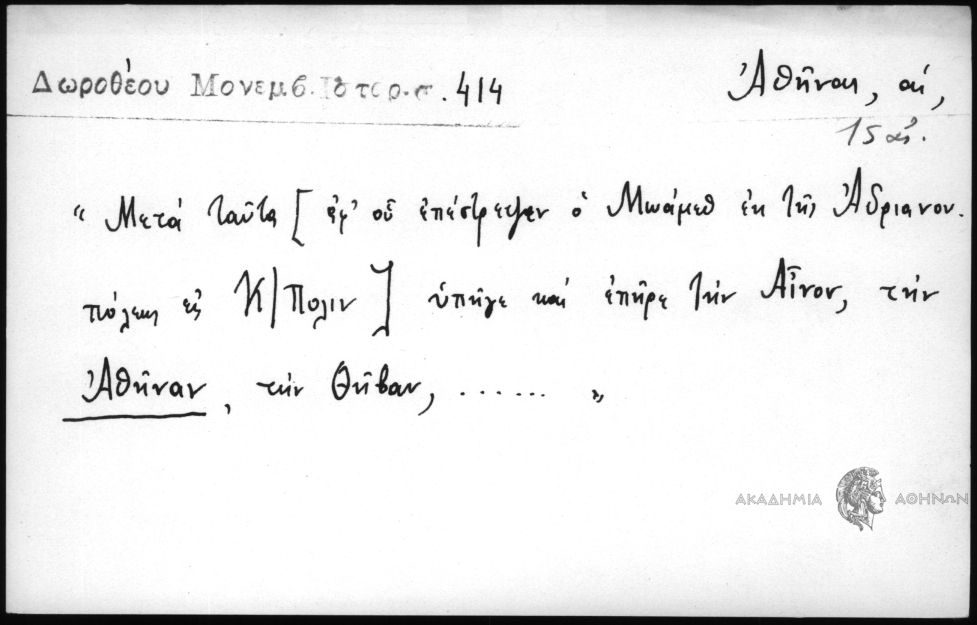 Δωροθέου Μονεμβ. Ἱστορ. σ. 414
Ἀθῆναι, αἱ,
15 αἰ.
“ Μετά ταῦτα [ ἀφ' οὗ ἐπέστρεψεν ὁ Μωάμεθ ἐκ τῆς Ἀδριανου-
πόλεως εἰς Κ/Πολιν ] ὑπῆγε καί ἐπῆρε τήν Αἶνον, τήν
Ἀθῆναν, τήν Θῆβαν, ...... ”
ΑΚΑΔΗΜΙΑ ΑΘΗΝΩΝ